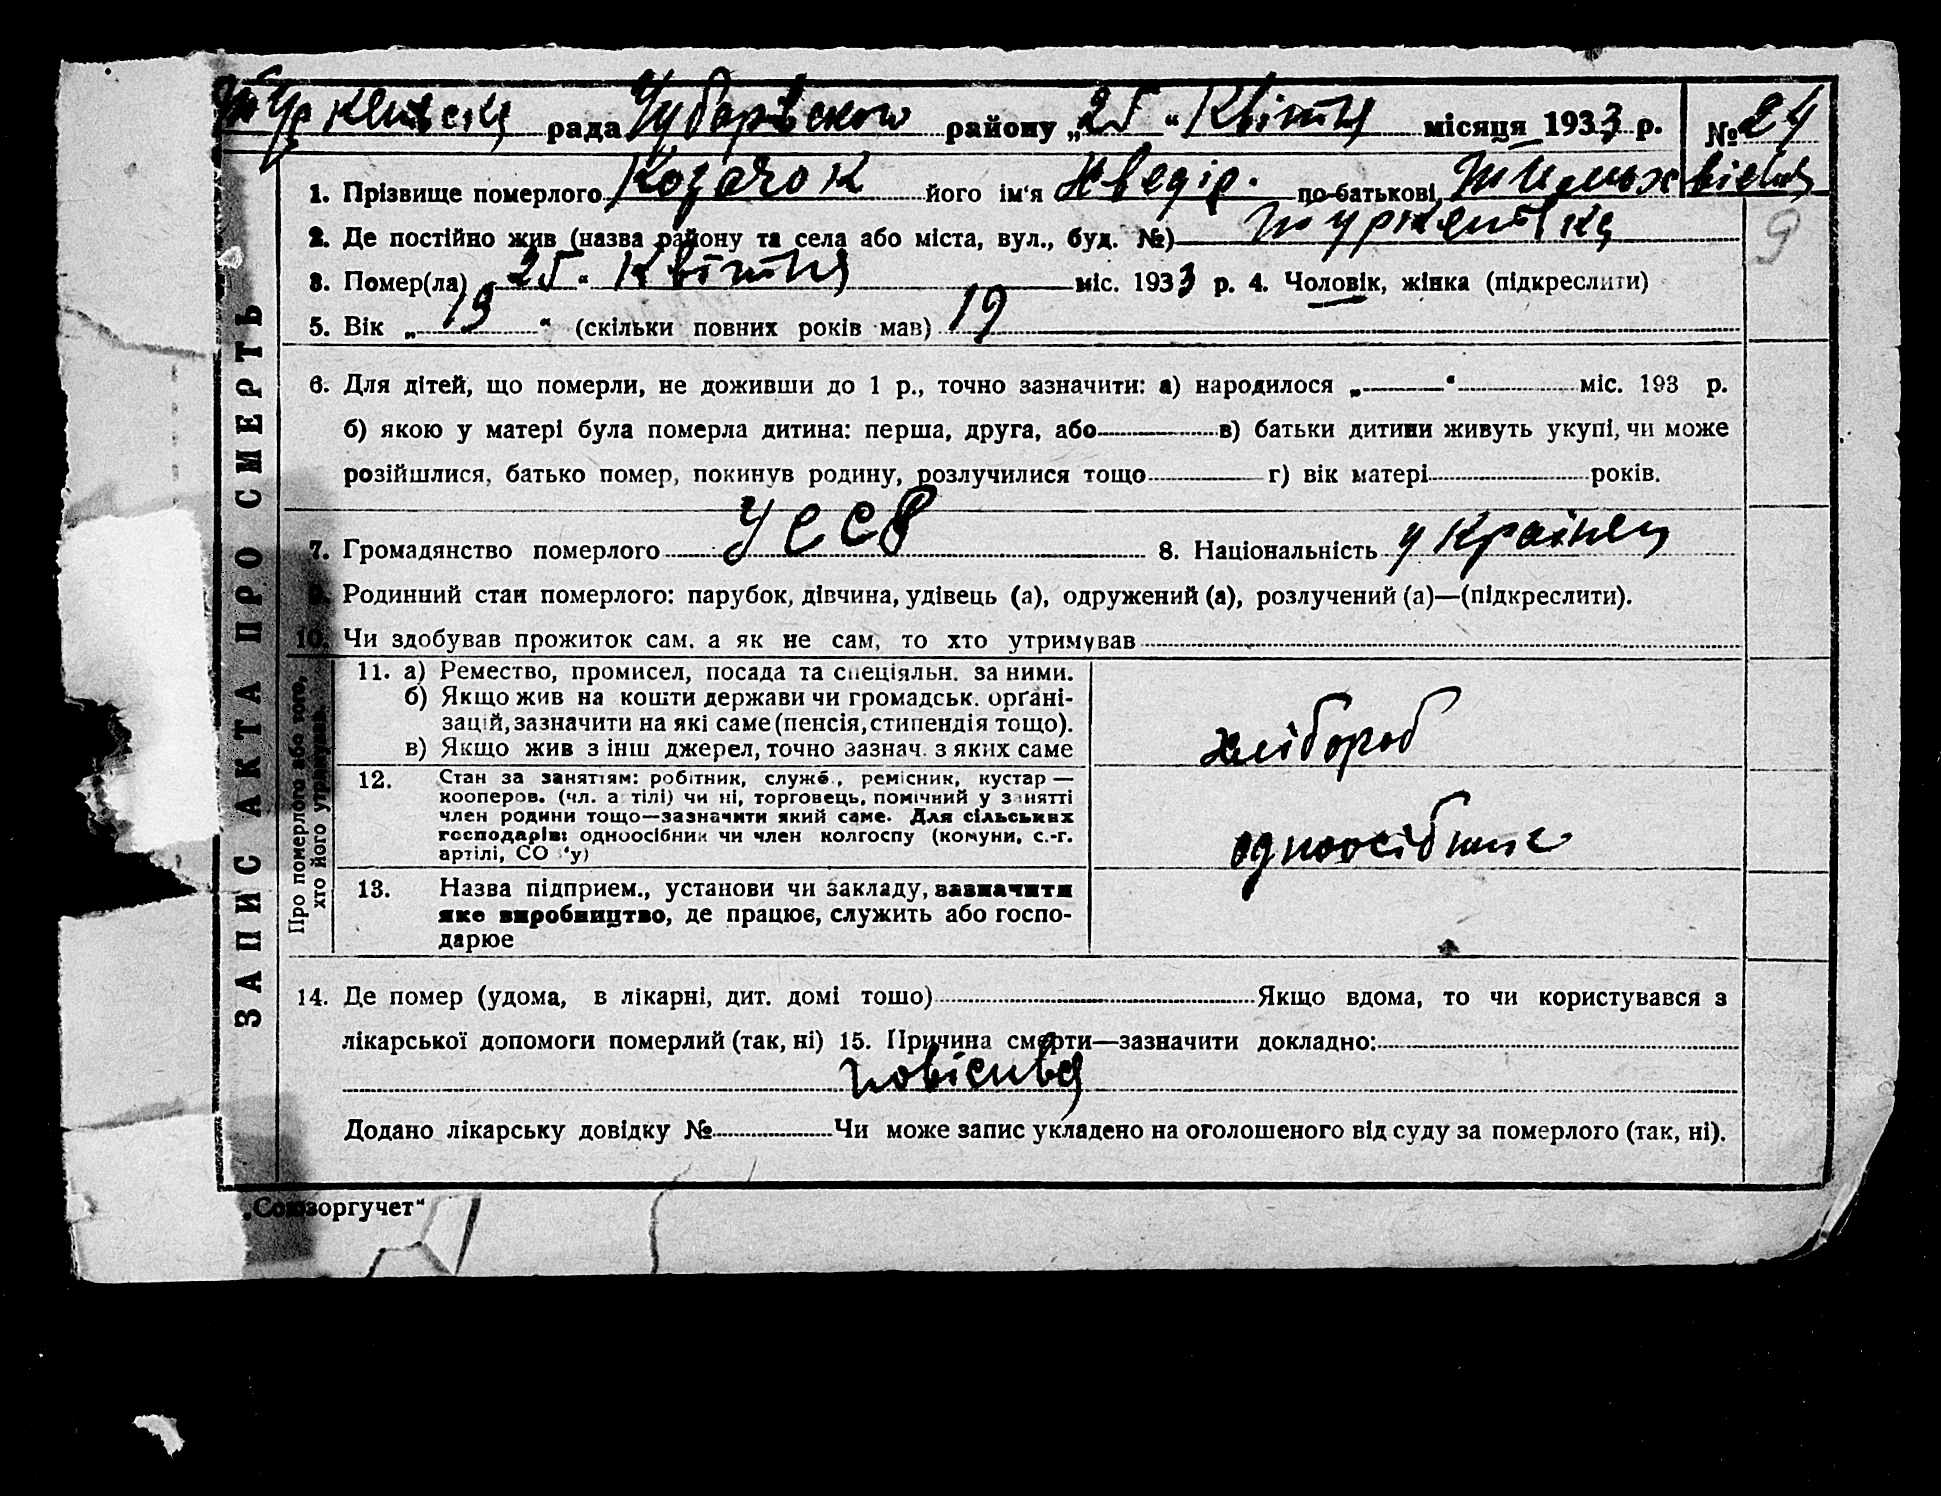 Туркенівська рада Чубарівського району „25“ Квітня місяця 1933 р. № 24
1. Прізвище померлого Козачок його ім'я Хведір. по-батькові
2. Де постійно жив (назва району та села або міста, вул., буд. №) Туркенівка
9
3. Помер(ла) „25“ Квітня міс. 1933 р. 4. Чоловік, жінка (підкреслити)
5. Вік „19“ (скільки повних років мав) 19
6. Для дітей, що померли, не доживши до 1 р., точно зазначити: а) народилося „ “ міс. 193 р.
б) якою у матері була померла дитина: перша, друга, або в) батьки дитини живуть укупі, чи може
розійшлися, батько помер, покинув родину, розлучилися тощо г) вік матері років.
7. Громадянство померлого УССР 8. Національність українец
9. Родинний стан померлого: парубок, дівчина, удівець (а), одружений (а), розлучений (а)—(підкреслити).
10. Чи здобував прожиток сам, а як не сам, то хто утримував
ЗАПИС АКТА ПРО СМЕРТЬ
Про померлого або того,
хто його утримував
11. а) Ремество, промисел, посада та спеціяльн. за ними.
б) Якщо жив на кошти держави чи громадськ. орґані-
зацій, зазначити на які саме (пенсія, стипендія тощо).
в) Якщо жив з інш джерел, точно зазнач. з яких саме
хлібороб
12. Стан за заняттям: робітник, служб., ремісник, кустар—
кооперов. (чл. артілі) чи ні, торговець, помічний у занятті
член родини тощо—зазначити який саме. Для сільських
господарів: одноосібник чи член колгоспу (комуни, с.-г.
артілі, СО 'у)
одноосібник
13. Назва підприєм., установи чи закладу, зазначити
яке виробництво, де працює, служить або госпо-
дарює
14. Де помер (удома, в лікарні, дит. домі тошо) Якщо вдома, то чи користувався з
лікарської допомоги померлий (так, ні) 15. Причина смерти—зазначити докладно:
повісивсь
Додано лікарську довідку № Чи може запис укладено на оголошеного від суду за померлого (так, ні).
„Союзоргучет“